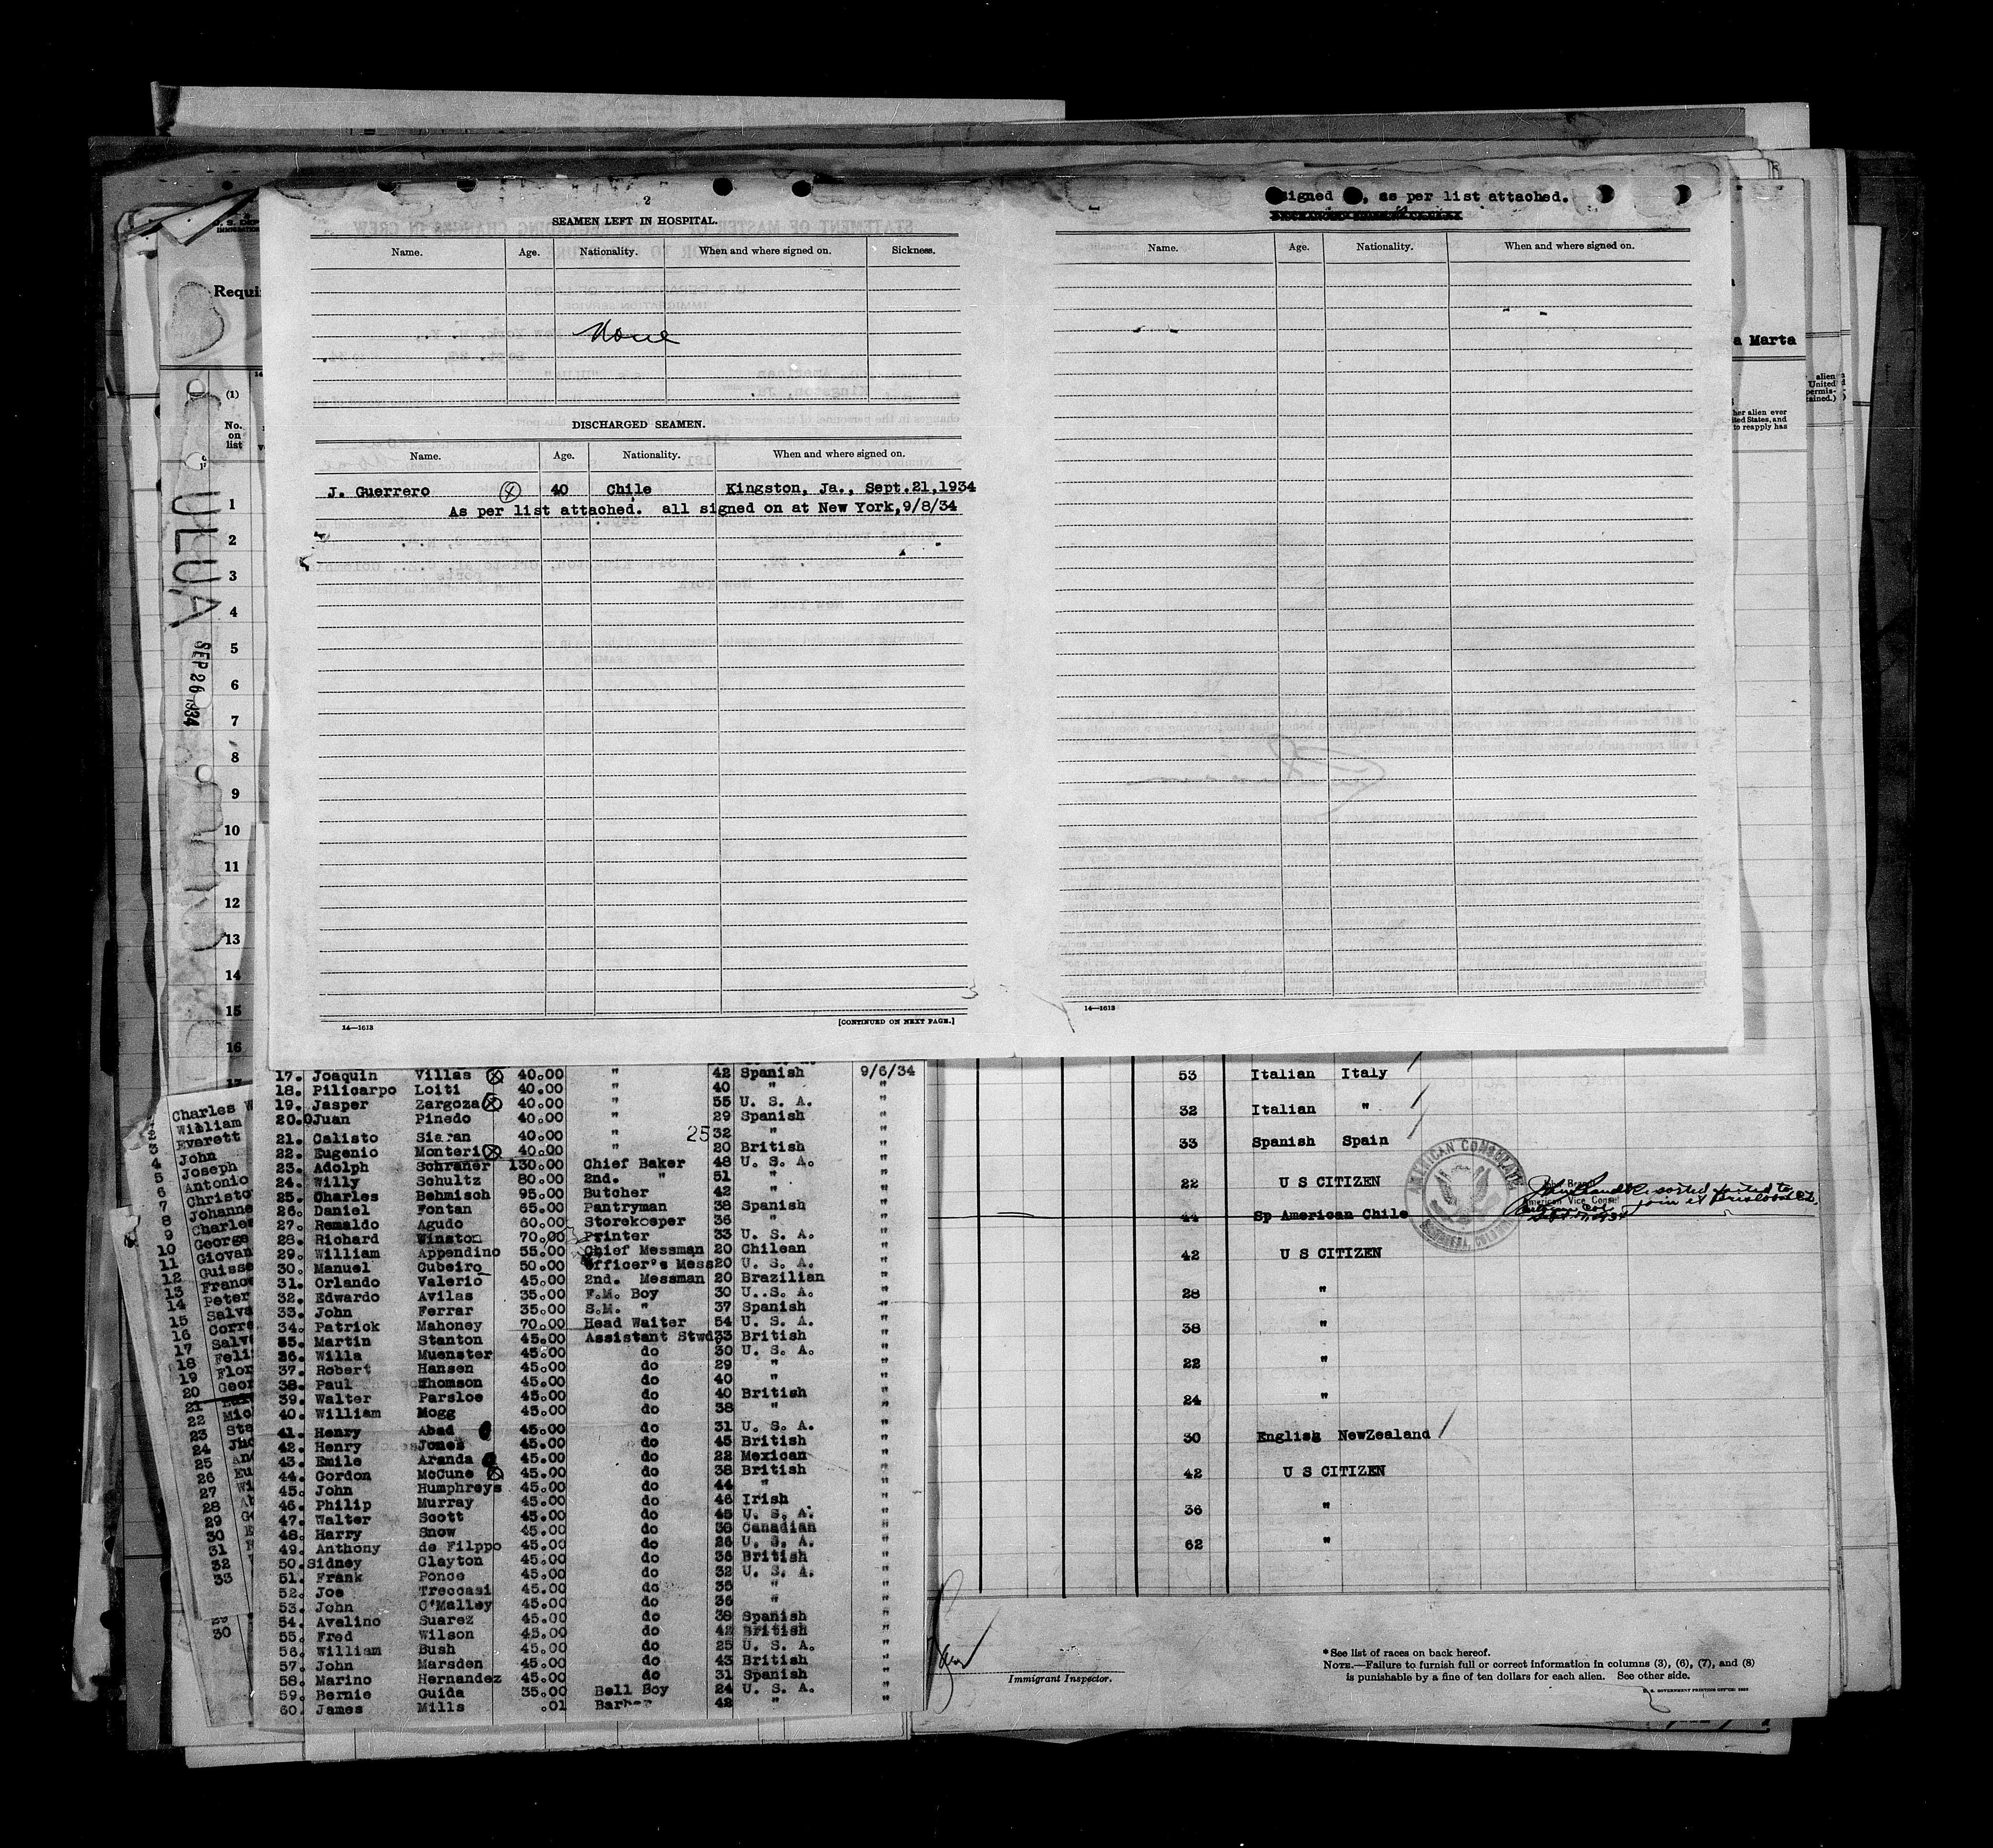 2
SEAMEN LEFT IN HOSPITAL.
Name. Age. Nationality. When and where signed on. Sickness.
None
DISCHARGED SEAMEN.
Name. Age. Nationality. When and where signed on.
J. Guerrero 40 Chile Kingston, Ja., Sept.21,1934
As per list attached. all signed on at New York,9/8/34
14—1613 [CONTINUED ON NEXT PAGE.]
signed , as per list attached.
Name. Age. Nationality. When and where signed on.
14—1613
Requi
a Marta
(1)
No.
on
list
ULUA
SEP 26 1934
1
2
3
4
5
6
7
8
9
10
11
12
13
14
15
16
17
alien
United
permis-
tained.)
her alien ever
ited States, and
to reapply has
Charles W
William
Everett
3 John
4 Joseph
5 Antonio
6 Christo
7 Johanne
8 Charles
9 George
10 Giovan
11 Guisse
12 France
13 Peter
14 Salva
15 Corre
16 Salv
17 Feli
18 Flor
19 Geor
20
21
22 Mic
23 Sta
24 Jho
25 An
26 Eu
27 Wi
28
29
30
31
32
33
29
30
17. Joaquin Villas 40.00 " 42 Spanish 9/6/34
18. Pilicarpo Loiti 40.00 " 40 " "
19. Jasper Zargoza 40.00 " 55 U. S. A. "
20. Juan Pinedo 40.00 " 29 Spanish "
21. Calisto Siaran 40.00 " 25 32 " "
22. Eugenio Monteri 40.00 " 20 British "
23. Adolph Schraner 130.00 Chief Baker 48 U. S. A. "
24. Willy Schultz 80.00 2nd. " 51 " "
25. Charles Behmisch 95.00 Butcher 42 " "
26. Daniel Fontan 65.00 Pantryman 38 Spanish "
27. Remaldo Agudo 60.00 Storekeeper 36 " "
28. Richard Winston 70.00 Printer 33 U. S. A. "
29. William Appendino 55.00 Chief Messman 20 Chilean "
30. Manuel Cubeiro 50.00 Officer's Mess 20 U. S. A. "
31. Orlando Valerio 45.00 2nd. Messman 20 Brazilian "
32. Edwardo Avilas 35.00 F.M. Boy 30 U. S. A. "
33. John Ferrar 35.00 S.M. " 37 Spanish "
34. Patrick Mahoney 70.00 Head Waiter 54 U. S. A. "
35. Martin Stanton 45.00 Assistant Stwd. 33 British "
36. Willa Muenster 45.00 do 30 U. S. A. "
37. Robert Hansen 45.00 do 29 " "
38. Paul Thomson 45.00 do 40 " "
39. Walter Parsloe 45.00 do 40 British "
40. William Mogg 45.00 do 38 " "
41. Henry Abad 45.00 do 31 U. S. A. "
42. Henry Jones 45.00 do 45 British "
43. Emile Aranda 45.00 do 22 Mexican "
44. Gordon McCune 45.00 do 38 British "
45. John Humphreys 45.00 do 44 " "
46. Philip Murray 45.00 do 46 Irish "
47. Walter Scott 45.00 do 45 U. S. A. "
48. Harry Snow 45.00 do 38 Canadian "
49. Anthony de Filppo 45.00 do 26 U. S. A. "
50. Sidney Clayton 45.00 do 36 British "
51. Frank Ponce 45.00 do 32 U. S. A. "
52. Joe Treccasi 45.00 do 35 " "
53. John O'Malley 45.00 do 36 " "
54. Avelino Suarez 45.00 do 38 Spanish "
55. Fred Wilson 45.00 do 42 British "
56. William Bush 45.00 do 25 U. S. A. "
57. John Marsden 45.00 do 43 British "
58. Marino Hernandez 45.00 do 31 Spanish "
59. Bernie Guida 35.00 Bell Boy 24 U. S. A. "
60. James Mills .01 Barber 42 " "
53 Italian Italy
32 Italian "
33 Spanish Spain
22 U S CITIZEN
44 Sp American Chile
AMERICAN CONSULATE
American Vice Consul
42 U S CITIZEN
28 "
38 "
22 "
24 "
30 English NewZealand
42 U S CITIZEN
36 "
62 "
Immigrant Inspector.
*See list of races on back hereof.
NOTE.—Failure to furnish full or correct information in columns (3), (6), (7), and (8)
is punishable by a fine of ten dollars for each alien. See other side.
U. S. GOVERNMENT PRINTING OFFICE: